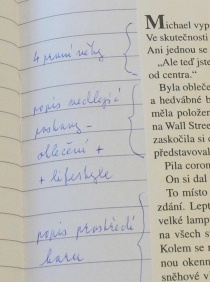 4 první věty
popis vedlejší
postavy –
oblečení +
+ lifestyle
popis prostředí
baru
Michael vyp
Ve skutečnosti
Ani jednou se
„Ale teď jste
od centra.“
Byla obleče
a hedvábné b
měla položen
na Wall Street
zaskočila si c
představoval
Pila coron
On si dal
To místo
zdání. Lept
velké lamp
na všech s
Kolem se r
nou okenn
sněhové v